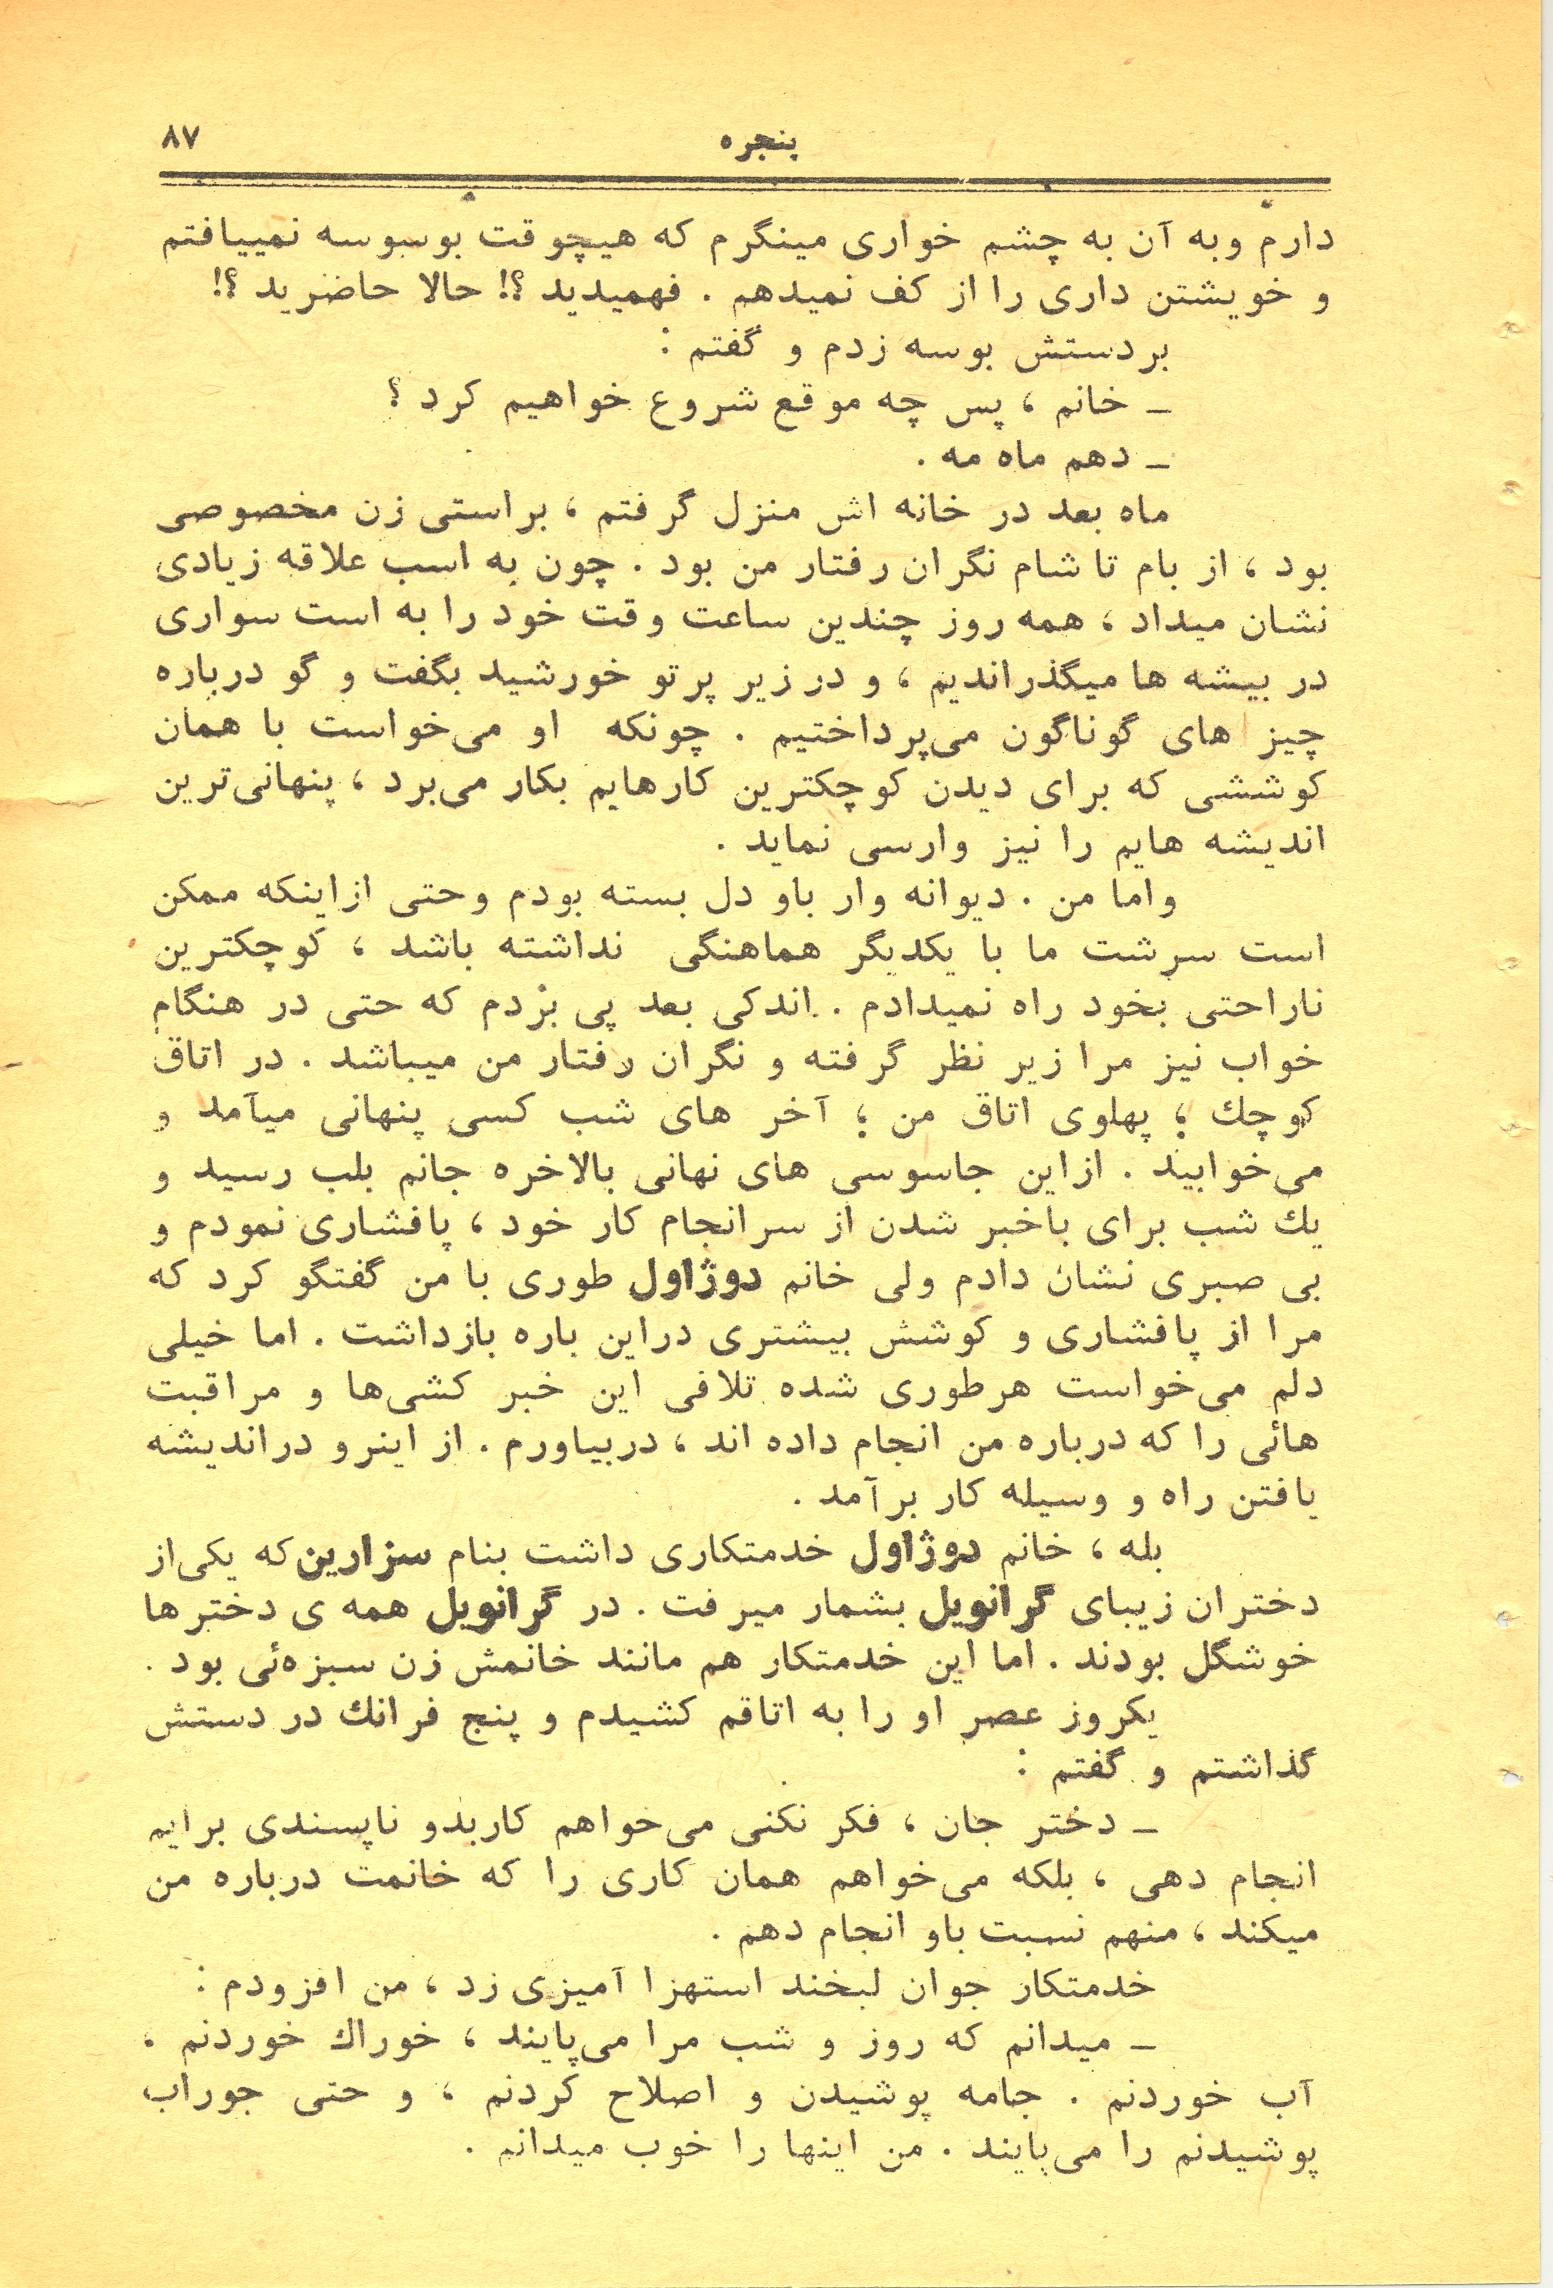 پنجره
۸۷
دارم وبه آن به چشم خواری مینگرم که هیچوقت بوسوسه نمییافتم
و خویشتن داری را از کف نمیدهم . فهمیدید ؟! حالا حاضرید ؟!
بردستش بوسه زدم و گفتم :
ـ خانم ، پس چه موقع شروع خواهیم کرد ؟
ـ دهم ماه مه .
ماه بعد در خانه اش منزل گرفتم ، براستی زن مخصوصی
بود ، از بام تا شام نگران رفتار من بود . چون به اسب علاقه زیادی
نشان میداد ، همه روز چندین ساعت وقت خود را به است سواری
در بیشه ها میگذراندیم ، و در زیر پرتو خورشید بگفت و گو درباره
چیز های گوناگون می‌پرداختیم . چونکه او می‌خواست با همان
کوششی که برای دیدن کوچکترین کارهایم بکار می‌برد ، پنهانی‌ترین
اندیشه هایم را نیز وارسی نماید .
واما من . دیوانه وار باو دل بسته بودم وحتی ازاینکه ممکن
است سرشت ما با یکدیگر هماهنگی نداشته باشد ، کوچکترین
ناراحتی بخود راه نمیدادم . اندکی بعد پی بردم که حتی در هنگام
خواب نیز مرا زیر نظر گرفته و نگران رفتار من میباشد . در اتاق
کوچك ؛ پهلوی اتاق من ؛ آخر های شب کسی پنهانی میآمد و
می‌خوابید . ازاین جاسوسی های نهانی بالاخره جانم بلب رسید و
یك شب برای باخبر شدن از سرانجام کار خود ، پافشاری نمودم و
بی صبری نشان دادم ولی خانم دوژاول طوری با من گفتگو کرد که
مرا از پافشاری و کوشش بیشتری دراین باره بازداشت . اما خیلی
دلم می‌خواست هرطوری شده تلافی این خبر کشی‌ها و مراقبت
هائی را که درباره من انجام داده اند ، دربیاورم . از اینرو دراندیشه
یافتن راه و وسیله کار برآمد .
بله ، خانم دوژاول خدمتکاری داشت بنام سزارین که یکی‌از
دختران زیبای گرانویل بشمار میرفت . در گرانویل همه ی دخترها
خوشگل بودند . اما این خدمتکار هم مانند خانمش زن سبزه‌ئی بود .
یکروز عصر او را به اتاقم کشیدم و پنج فرانك در دستش
گذاشتم و گفتم :
ـ دختر جان ، فکر نکنی می‌خواهم کاربدو ناپسندی برایم
انجام دهی ، بلکه می‌خواهم همان کاری را که خانمت درباره من
میکند ، منهم نسبت باو انجام دهم .
خدمتکار جوان لبخند استهزا آمیزی زد ، من افزودم :
ـ میدانم که روز و شب مرا می‌پایند ، خوراك خوردنم ،
آب خوردنم . جامه پوشیدن و اصلاح کردنم ، و حتی جوراب
پوشیدنم را می‌پایند . من اینها را خوب میدانم .